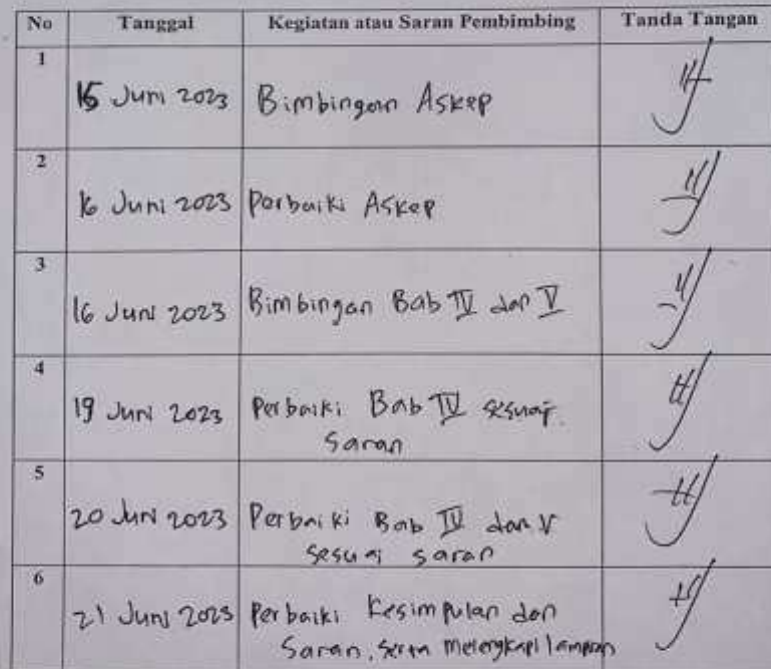 No Tanggal Kegiatan atau Saran Pembimbing Tanda Tangan
1
15 Juni 2023 Bimbingan Askep
2
16 Juni 2023 Perbaiki Askep
3
16 Juni 2023 Bimbingan Bab IV dan V
4
19 Juni 2023 Perbaiki Bab IV sesuai
saran
5
20 Juni 2023 Perbaiki Bab IV dan V
sesuai saran
6
21 Juni 2023 Perbaiki Kesimpulan dan
Saran, serta melengkapi lampiran